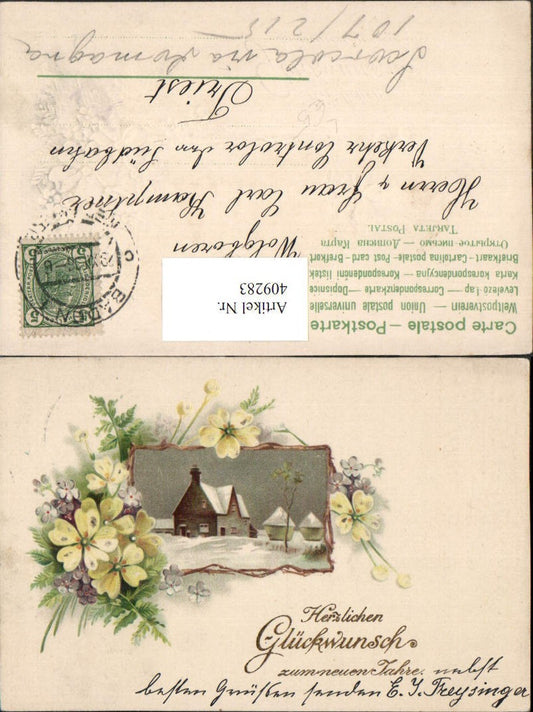 Carte postale — Postkarte
Weltpostverein — Union postale universelle
Levelező-Lap — Correspondenzkarte — Dopisnice
Karta korespondencyjna — Korespondenční lístek
Briefkaart — Cartolina postale — Post card — Brefkort
Открытое письмо — Дописна Карта
TARJETA POSTAL
Wolgboren
Herrn & Frau Carl Kamptner
Verkehr Controlor der Südbahn
Triest
107/215
Artikel Nr.
409283
5 5
Herzlichen
Glückwunsch
zum neuen Jahre. nebst
besten Grüßen senden E. J. Freysinger